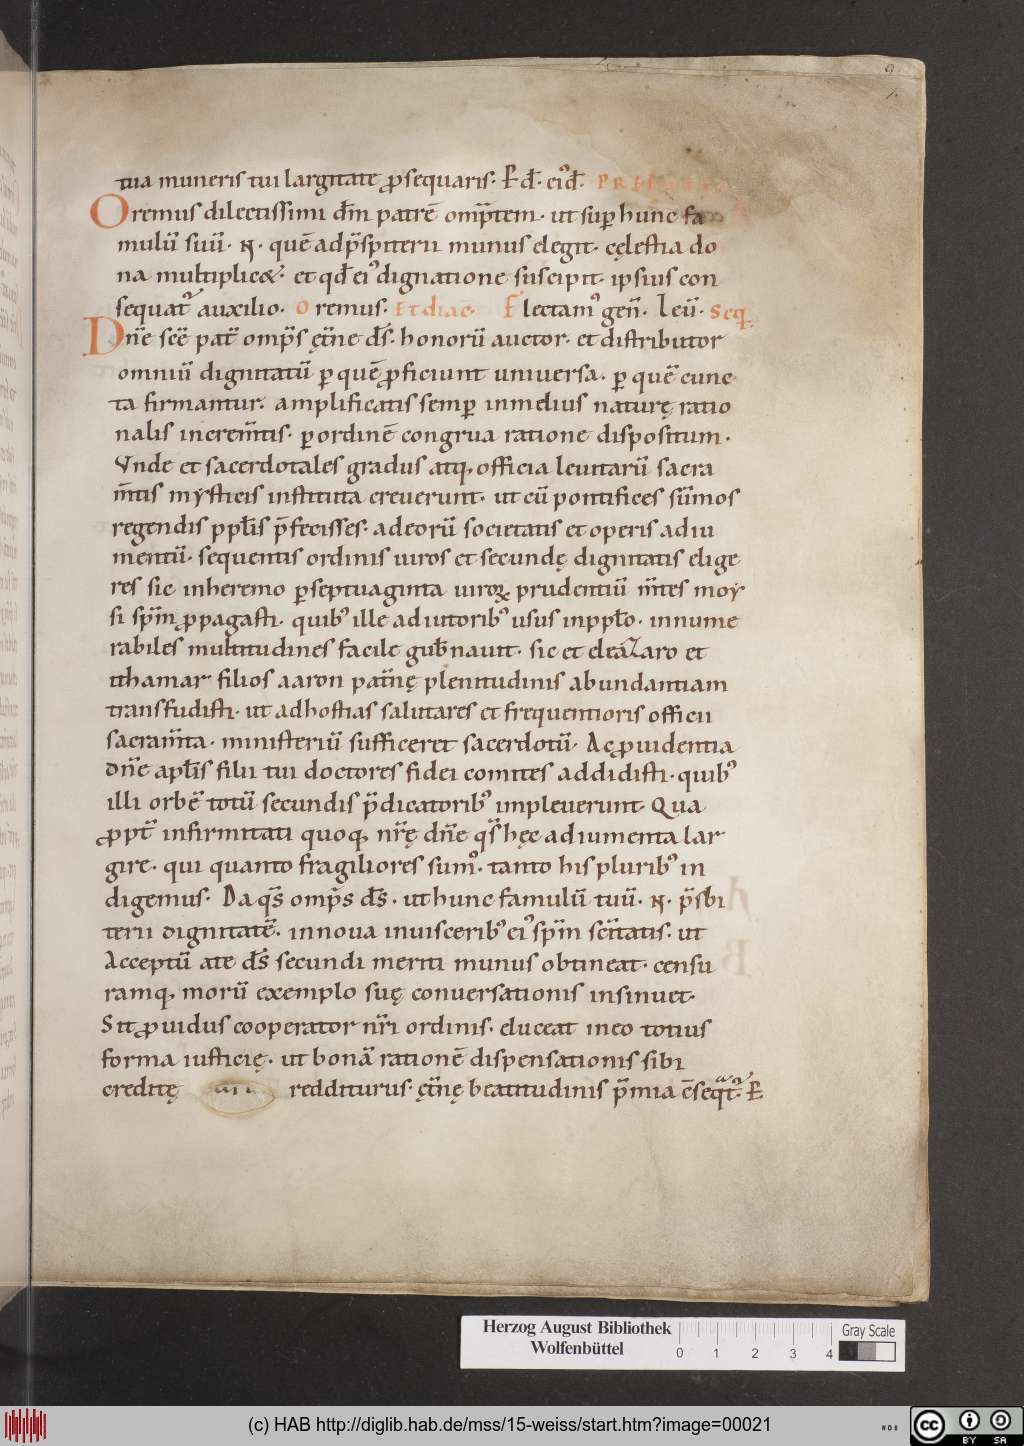 tua muneris tui largitate ꝓsequaris· P̲ d̅· eiꝰd̅·
Oremus dilectissimi d̅m patrē omp̅tem· ut suꝑ hunc fa
mulū suū· N· quē adp̅sp̅iterii munus elegit· cęlestia do
na multiplic&· et qd̅ eiꝰ dignatione suscipit· ipsius con
sequat᷑ auxilio· Oremus· Et diac· Flectamꝰ gen̅· Leu̅· Seq̅
Dn̅e sc̅e pat̅ omp̅s ęt̅ne d̅s· honorū auctor· et distributor
omniū dignitatū ꝑ quē ꝓficiunt uniuersa· ꝑ quē cunc
ta firmantur· amplificatis semꝑ inmelius naturę ratio
nalis increm̅tis· ꝑ ordinē congrua ratione dispositum·
Vnde et sacerdotales gradus atq, officia leuitarū sacra
m̅tis mysticis instituta creuerunt· ut cū pontifices sūmos
regendis ppl̅is p̅fecisses· adeorū societatis et operis adiu
mentū· sequentis ordinis uiros et secundę dignitatis elige
res sic inheremo ꝑseptuaginta uiroꝝ prudentiū m̅tes moy
si sp̅m ꝓpagasti· quibꝰ ille adiutoribꝰ usus inppl̅o· innume
rabiles multitudines facile gub̅nauit· sic et eleazaro et
ithamar filios aaron pat̅nę plenitudinis abundantiam
transfudisti· ut adhostias salutares et frequentioris officii
sacram̅ta· ministeriū sufficeret sacerdotū· Ac ꝓuidentia
dn̅e apl̅is filii tui doctores fidei comites addidisti· quibꝰ
illi orbē totū secundis p̅dicatoribꝰ impleuerunt· Qua
ꝓpt̅ infirmitati quoq, nr̅ę dn̅e qs̅ hęc adiumenta lar
gire· qui quanto fragiliores sumꝰ· tanto his pluribꝰ in
digemus· Da qs̅ omp̅s d̅s· ut hunc famulū tuū· N· p̅sbi
terii dignitatē· innoua inuisceribꝰ eiꝰ sp̅m sc̅itatis· ut
Acceptū ate d̅s secundi meriti munus obtineat· censu
ramq, morū exemplo suę conuersationis insinuet·
Sit ꝓuidus cooperator nr̅i ordinis· eluceat ineo totius
forma iusticię· ut bonā rationē dispensationis sibi
creditę redditurus· ęt̅nę beatitudinis p̅mia c̅seqt̅·
Herzog August Bibliothek
Wolfenbüttel
0 1 2 3 4
Gray Scale
(c) HAB http://diglib.hab.de/mss/15-weiss/start.htm?image=00021
WDB
cc BY SA